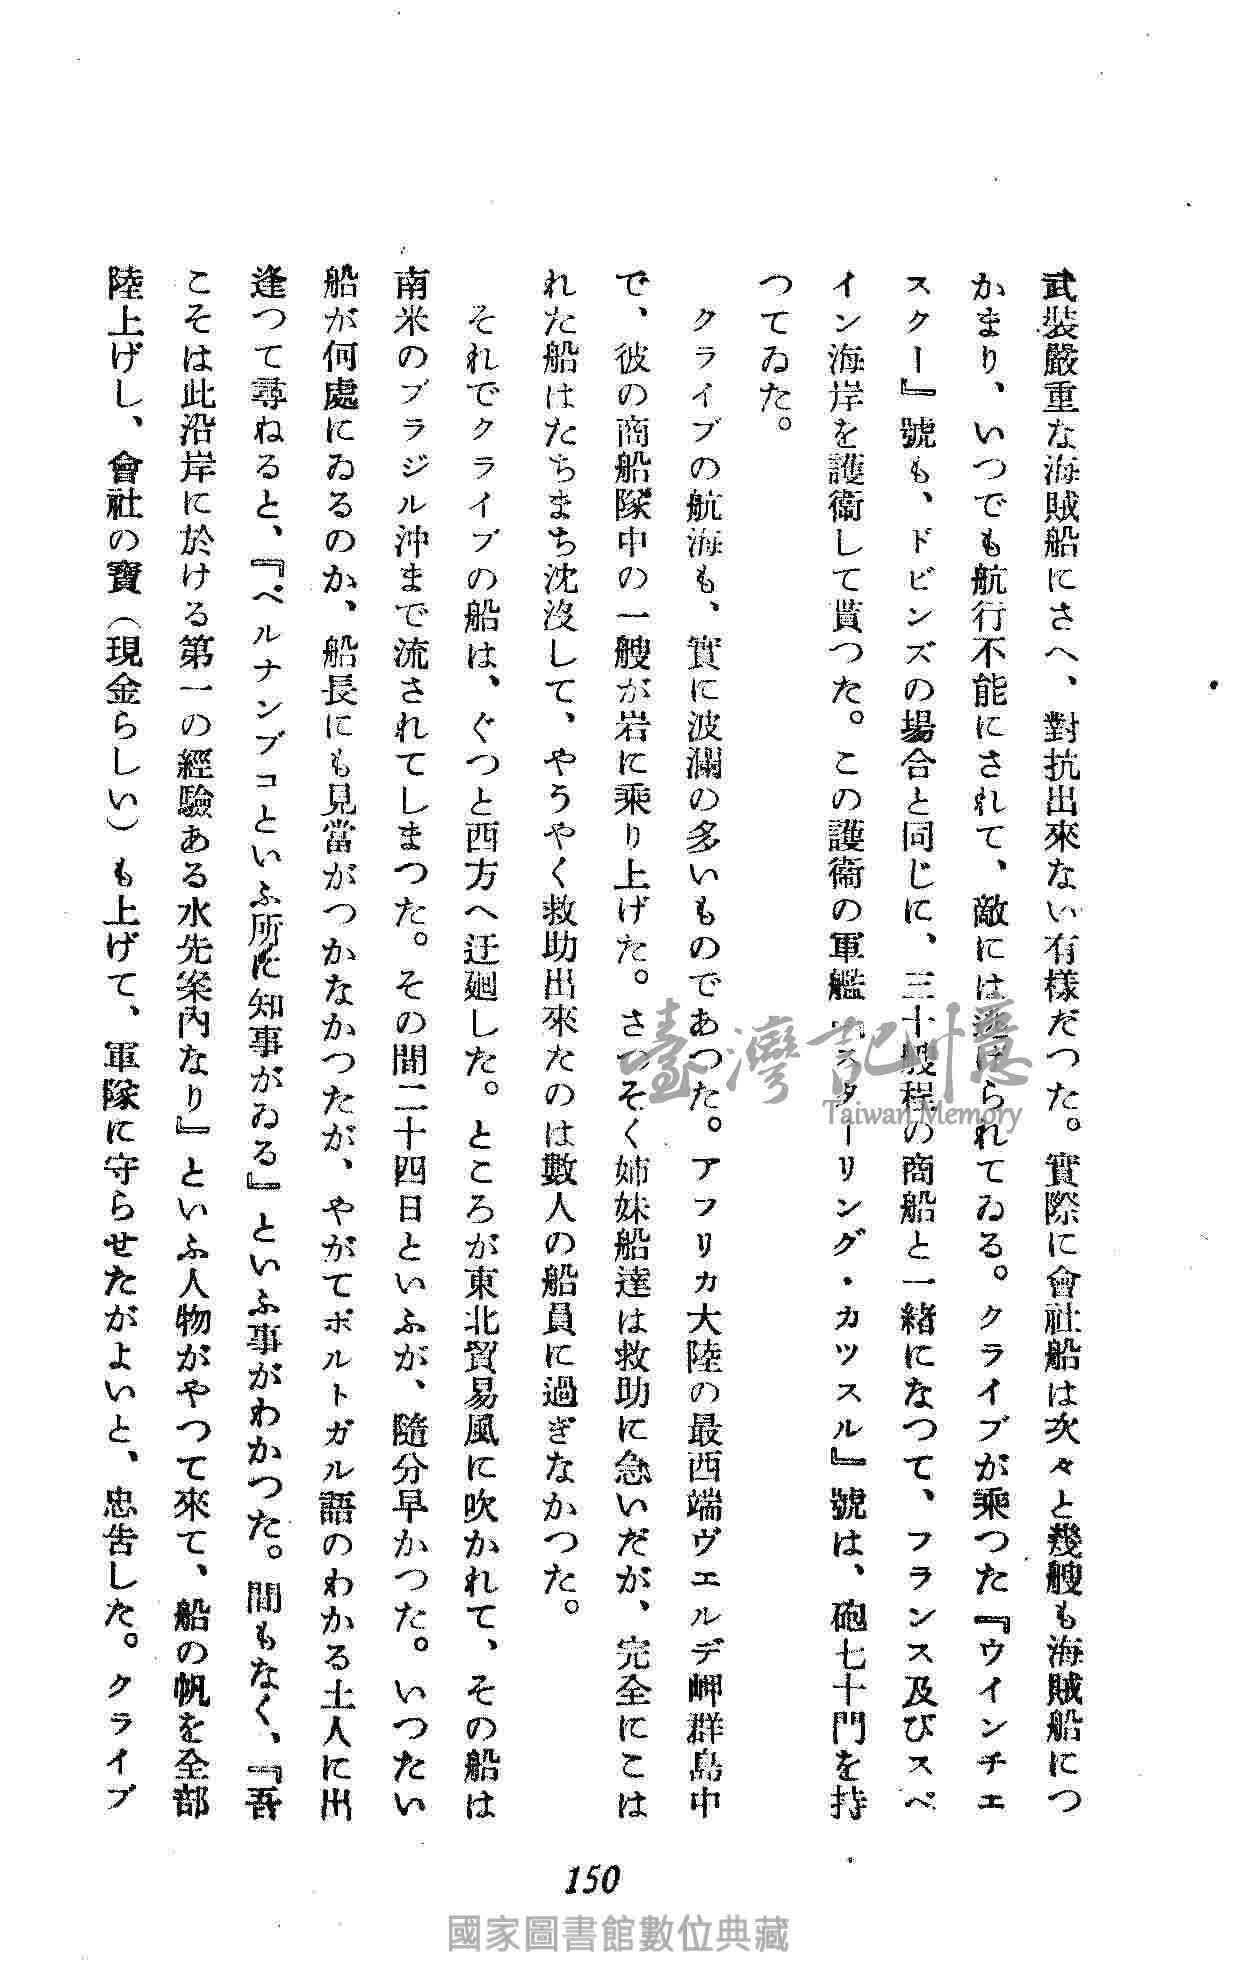 武裝嚴重な海賊船にさへ、對抗出來ない有樣だつた。實際に會社船は次々と幾艘も海賊船につ
かまり、いつでも航行不能にされて、敵には逃げられてゐる。クライブが乘つた『ウインチェ
スター』號も、ドビンズの場合と同じに、三十艘程の商船と一緒になつて、フランス及びスペ
イン海岸を護衞して貰つた。この護衞の軍艦『スターリング・カツスル』號は、砲七十門を持
つてゐた。
クライブの航海も、實に波瀾の多いものであつた。アフリカ大陸の最西端ヴエルデ岬群島中
で、彼の商船隊中の一艘が岩に乘り上げた。さつそく姉妹船達は救助に急いだが、完全にこは
れた船はたちまち沈沒して、やうやく救助出來たのは數人の船員に過ぎなかつた。
それでクライブの船は、ぐつと西方へ迂廻した。ところが東北貿易風に吹かれて、その船は
南米のブラジル沖まで流されてしまつた。その間二十四日といふが、隨分早かつた。いつたい
船が何處にゐるのか、船長にも見當がつかなかつたが、やがてポルトガル語のわかる土人に出
逢つて尋ねると、『ペルナンブコといふ所に知事がゐる』といふ事がわかつた。間もなく、『吾
こそは此沿岸に於ける第一の經驗ある水先案內なり』といふ人物がやつて來て、船の帆を全部
陸上げし、會社の寶（現金らしい）も上げて、軍隊に守らせたがよいと、忠告した。クライブ
150
臺灣記憶
Taiwan Memory
國家圖書館數位典藏